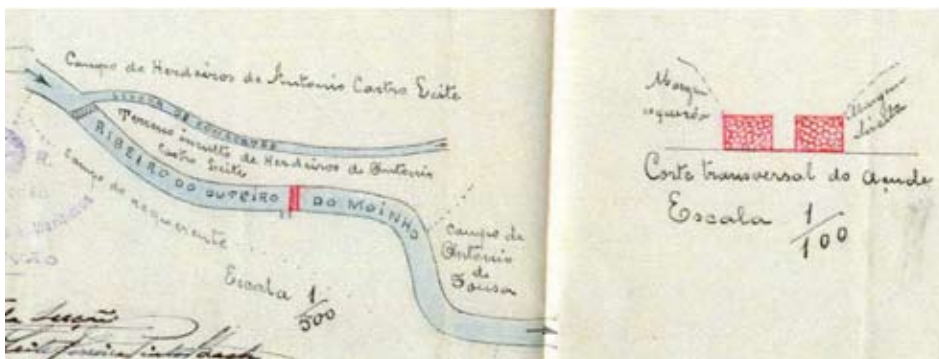 Campo de Herdeiros de Antonio Castro Leite
Terreno inculto de Herdeiros de Antonio
Castro Leite
RIBEIRO DO OUTEIRO DO MOINHO
Campo do requerente
Campo de
Antonio
de
Sousa
Escala 1/500
Margem
esquerda
Margem
direita
Corte transversal do açude
Escala 1/100